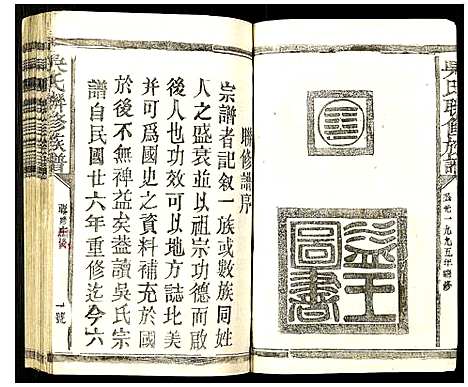 吳氏聯修族譜
公元一九九五年聯修
益王圖書
聯修譜序
宗譜者記叙一族或數族同姓
人之盛衰並以祖宗功德而啟
後人也功效可以地方誌比美
并可爲國史之資料補充於國
於後不無裨益矣益讀吳氏宗
譜自民國廿六年重修迄今六
吳氏聯修族譜
一號